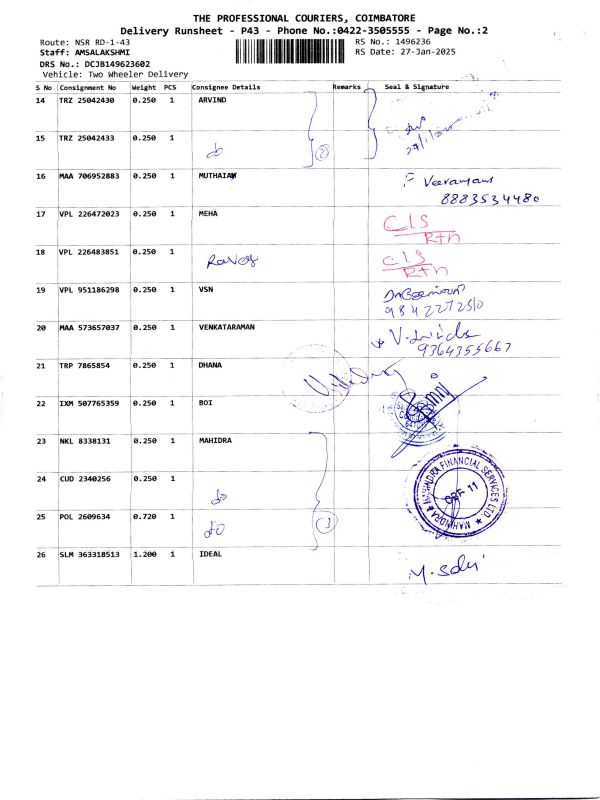 THE PROFESSIONAL COURIERS, COIMBATORE
Delivery Runsheet - P43 - Phone No.:0422-3505555 - Page No.:2
Route: NSR RD-1-43 RS No.: 1496236
Staff: AMSALAKSHMI RS Date: 27-Jan-2025
DRS No.: DCJB149623602
Vehicle: Two Wheeler Delivery
S No Consignment No Weight PCS Consignee Details Remarks Seal & Signature
14 TRZ 25042430 0.250 1 ARVIND
15 TRZ 25042433 0.250 1
do (2)
16 MAA 706952883 0.250 1 MUTHAIAH
8883534480
17 VPL 226472023 0.250 1 MEHA CIS
Rtn
18 VPL 226483851 0.250 1 CIS
Rtn
19 VPL 951186298 0.250 1 VSN
9842272510
20 MAA 573657037 0.250 1 VENKATARAMAN
9364355667
21 TRP 7865854 0.250 1 DHANA
22 IXM 507765359 0.250 1 BOI
23 NKL 8338131 0.250 1 MAHIDRA
MAHINDRA & MAHINDRA FINANCIAL SERVICES LTD
24 CUD 2340256 0.250 1
do
25 POL 2609634 0.720 1
do (3)
26 SLM 363318513 1.200 1 IDEAL